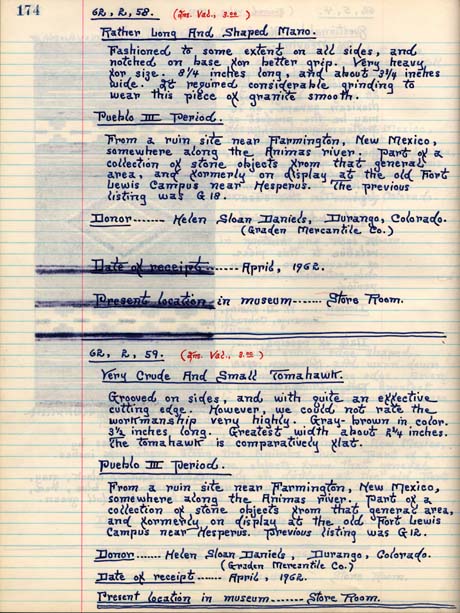 174
62, 2, 58. (Ins. Val., 3.00)
Rather Long And Shaped Mano.
Fashioned to some extent on all sides, and
notched on base for better grip. Very heavy
for size. 8 1/4 inches long, and about 3 3/4 inches
wide. It required considerable grinding to
wear this piece of granite smooth.
Pueblo III Period.
From a ruin site near Farmington, New Mexico,
somewhere along the Animas river. Part of a
collection of stone objects from that general
area, and formerly on display at the old Fort
Lewis Campus near Hesperus. The previous
listing was G 18.
Donor ------- Helen Sloan Daniels, Durango, Colorado.
(Graden Mercantile Co.)
Date of receipt ------- April, 1962.
Present location in museum ------- Store Room.
62, 2, 59. (Ins. Val., 3.00)
Very Crude And Small Tomahawk.
Grooved on sides, and with quite an effective
cutting edge. However, we could not rate the
workmanship very highly. Gray-brown in color.
3 1/2 inches long. Greatest width about 2 1/4 inches.
The tomahawk is comparatively flat.
Pueblo III Period.
From a ruin site near Farmington, New Mexico,
somewhere along the Animas river. Part of a
collection of stone objects from that general area,
and formerly on display at the old Fort Lewis
Campus near Hesperus. Previous listing was G 12.
Donor ------ Helen Sloan Daniels, Durango, Colorado.
(Graden Mercantile Co.)
Date of receipt ------ April, 1962.
Present location in museum ------- Store Room.